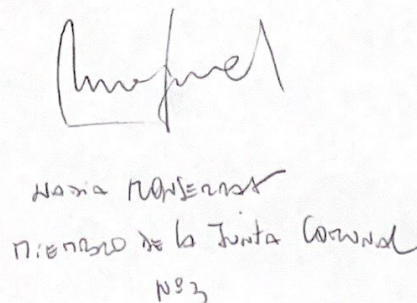 Nadia Monserrat
Miembro de la Junta Comunal
Nº 3